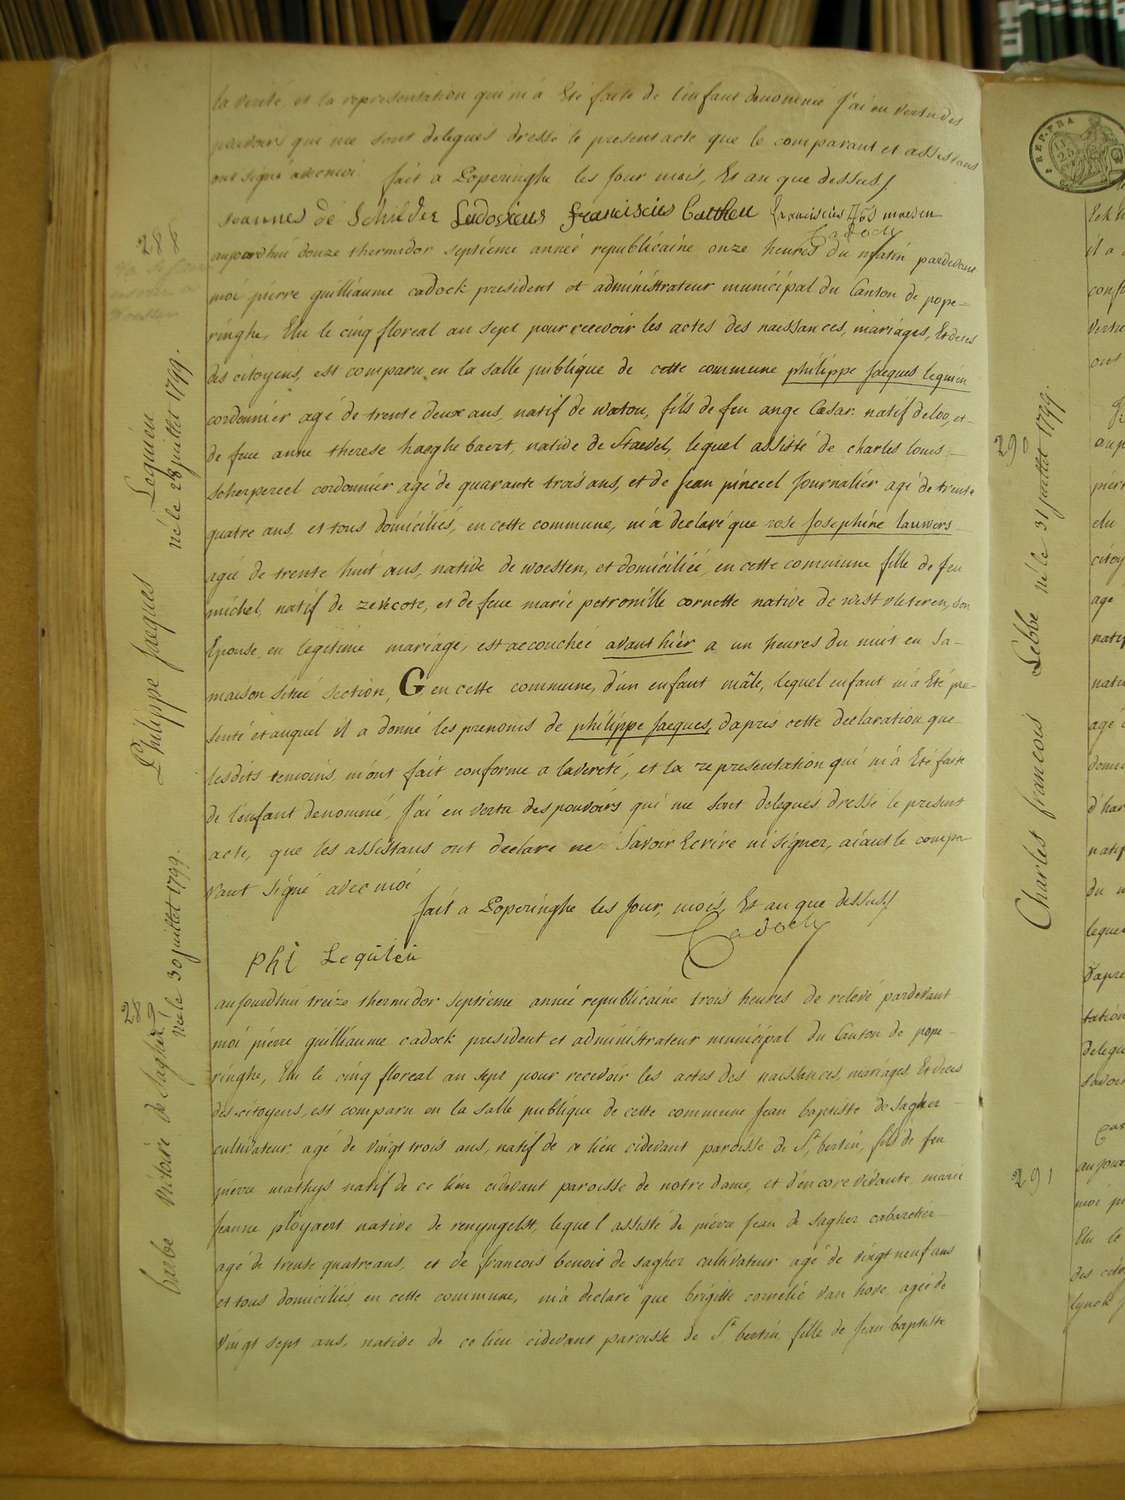 la verite, et la representation qui m'a Eté faite de l'enfant denommé J'ai en vertu des
pouvoirs qui me sont delegues dressé le present acte que le comparant et assistans
ont signé avec moi. fait a Poperinghe les Jour mois, Et an que dessus
Joannes de Schilder Ludovicus Franciscus Cattheu Franciscus
Cadock
288
aujourdhui douze thermidor septiéme anneé republicaine onze heures du matin pardevant
moi pierre guilliaume cadock president et administrateur municipal du Canton de pope-
ringhe, Elu le cinq floreal an sept pour recevoir les actes des naissances, mariages, Et deces
des citoyens, est comparu en la salle publique de cette commune philippe Jaeques lequien
cordonnier agé de trente deux ans, natif de watou, fils de feu ange Cæsar natif de loo, et
de feue anne therese haeghebaert, native de Stavel, lequel assisté de charles louis
scherpereel cordonnier agé de quarante trois ans, et de Jean pinceel Journaliér agé de trente
quatre ans, et tous domiciliés, en cette commune, m'a declaré que rose Josephine lauwers
ageé de trente huit ans, native de woesten, et domiciliée, en cette commune fille de feu
michel, natif de zevecote, et de feue marie petronille cornette native de westvleteren, son
Epouse, en legitime mariage, est accouchée avant hiér a un heures du nuit en sa-
maison situé section, G en cette commune, d'un enfant mâle, lequel enfant m'a Eté pre-
senté et auquel il a donné les prenoms de philippe Jaeques, d'aprés cette declaration que
lesdits temoins m'ont fait conforme a la verité, et la representation qui m'a Eté faite
de l'enfant denommé, J'ai en vertu des pouvoirs qui me sont delegués dressé le present
acte, que les assistans ont declaré ne Savoir Ecrire ni signer, aiant le compa
rant signé avec moi
fait a Poperinghe les Jour, mois, Et an que dessus
Cadock
Phi Lequieu
Philippe Jaeques Lequien
né le 28 juillet 1799.
28
aujourdhui treize thermidor septiéme année republicaine trois heures de relevé pardevant
moi piérre guilliaume cadock president et administrateur municipal du Canton de pope-
ringhe, Elu le cinq floreal an sept pour recevoir les actes des naissances, mariages Et deces
des citoyens, est comparu en la salle publique de cette commune Jean baptiste de sagher
cultivateur agé de vingt trois ans, natif de ce lieu cidevant paroisse de St bertin, fils de feu
piérre mathys natif de ce lieu cidevant paroisse de notre dame, et d'encore vivante marie
Jeanne ployaert native de renyngelst, lequel assisté de piérre Jean de sagher cabaretier
agé de trente quatre ans, et de francois benoit de sagher cultivateur agé de vingt neuf ans
et tous domiciliés en cette commune, m'a declaré que brigitte cornélié van hove, ageé de
vingt sept ans, native de ce lieu cidevant paroisse de St bertin, fille de Jean baptiste
barbe victoire de Sagher
née le 30 juillet 1799.
REP. FRA
290
Charles francois Lebbe né le 31 juillet 1799.
il a
ont
elu
citoy
age
natif
nati
agé
d'har
natif
du
leque
d'apre
tation
delegue
savoir
291
aujour
moi pi
Elu le
des cito